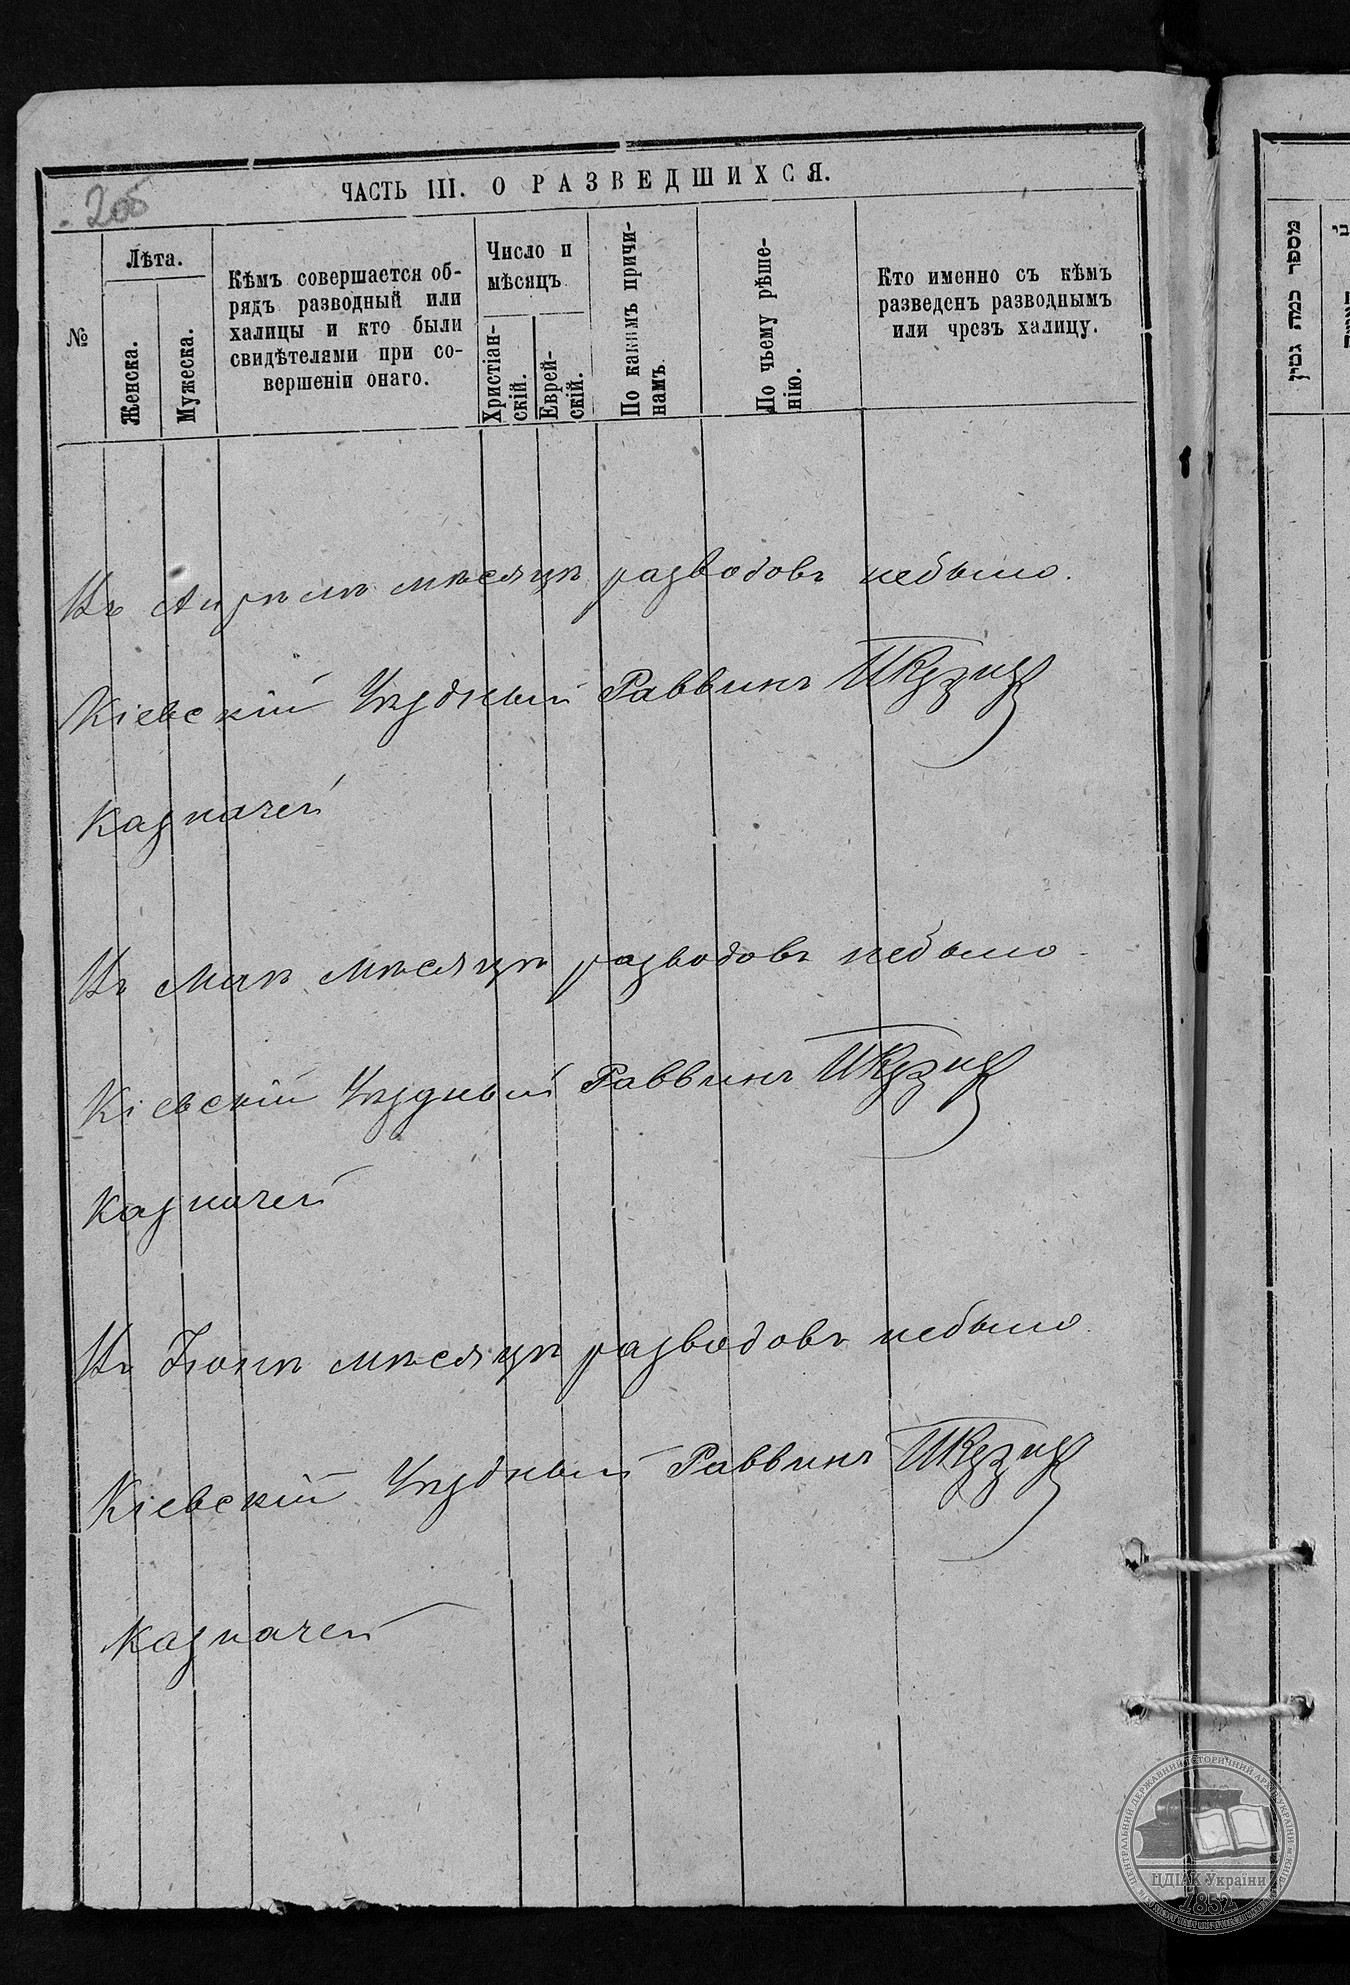 ЧАСТЬ III. О РАЗВЕДШИХСЯ.
№
Лѣта.
Женска.
Мужеска.
Кѣмъ совершается об-
рядъ разводный или
халицы и кто были
свидѣтелями при со-
вершеніи онаго.
Число и
мѣсяцъ
Христіан-
скій.
Еврей-
скій.
По какимъ причи-
намъ.
По чьему рѣше-
нію.
Кто именно съ кѣмъ
разведенъ разводнымъ
или чрезъ халицу.
Въ Апрѣлѣ мѣсяцѣ разводовъ небыло.
Кіевскій Уѣздный Раввинъ
Казначей
Въ Маѣ мѣсяцѣ разводовъ небыло
Кіевскій Уѣздный Раввинъ
Казначей
Въ Іюнѣ мѣсяцѣ разводовъ небыло
Кіевскій Уѣздный Раввинъ
Казначей
מספר כמה גטין
ЦЕНТРАЛЬНИЙ ДЕРЖАВНИЙ ІСТОРИЧНИЙ АРХІВ УКРАЇНИ
ЦДІАК України
1852